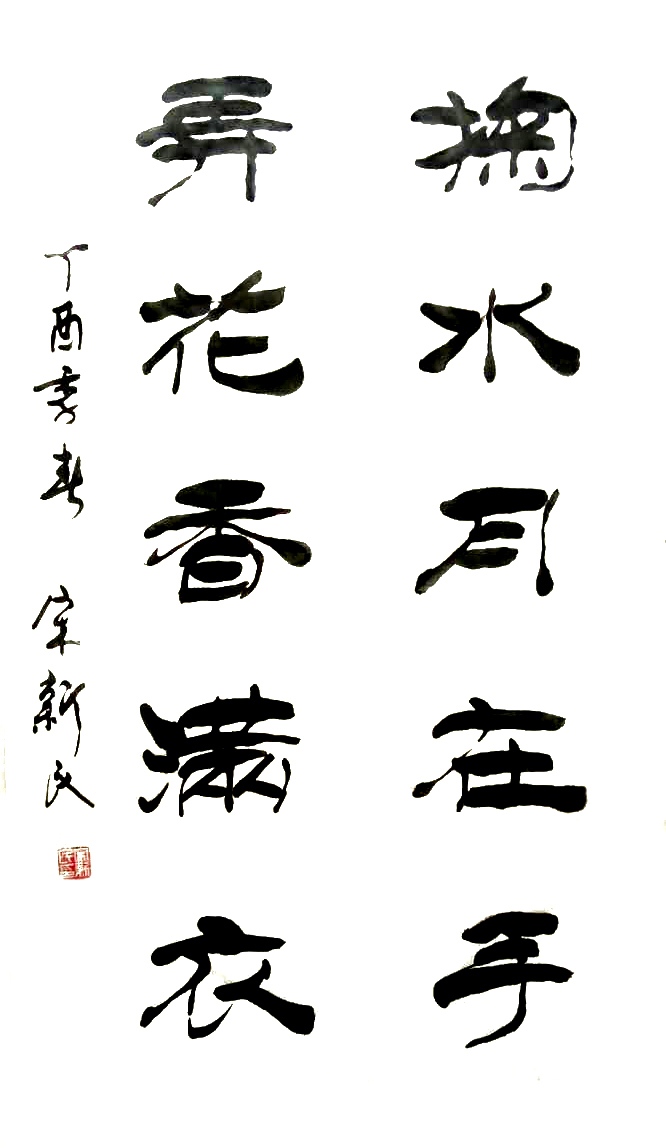 掬水月在手
弄花香满衣
丁酉季春 宋新民